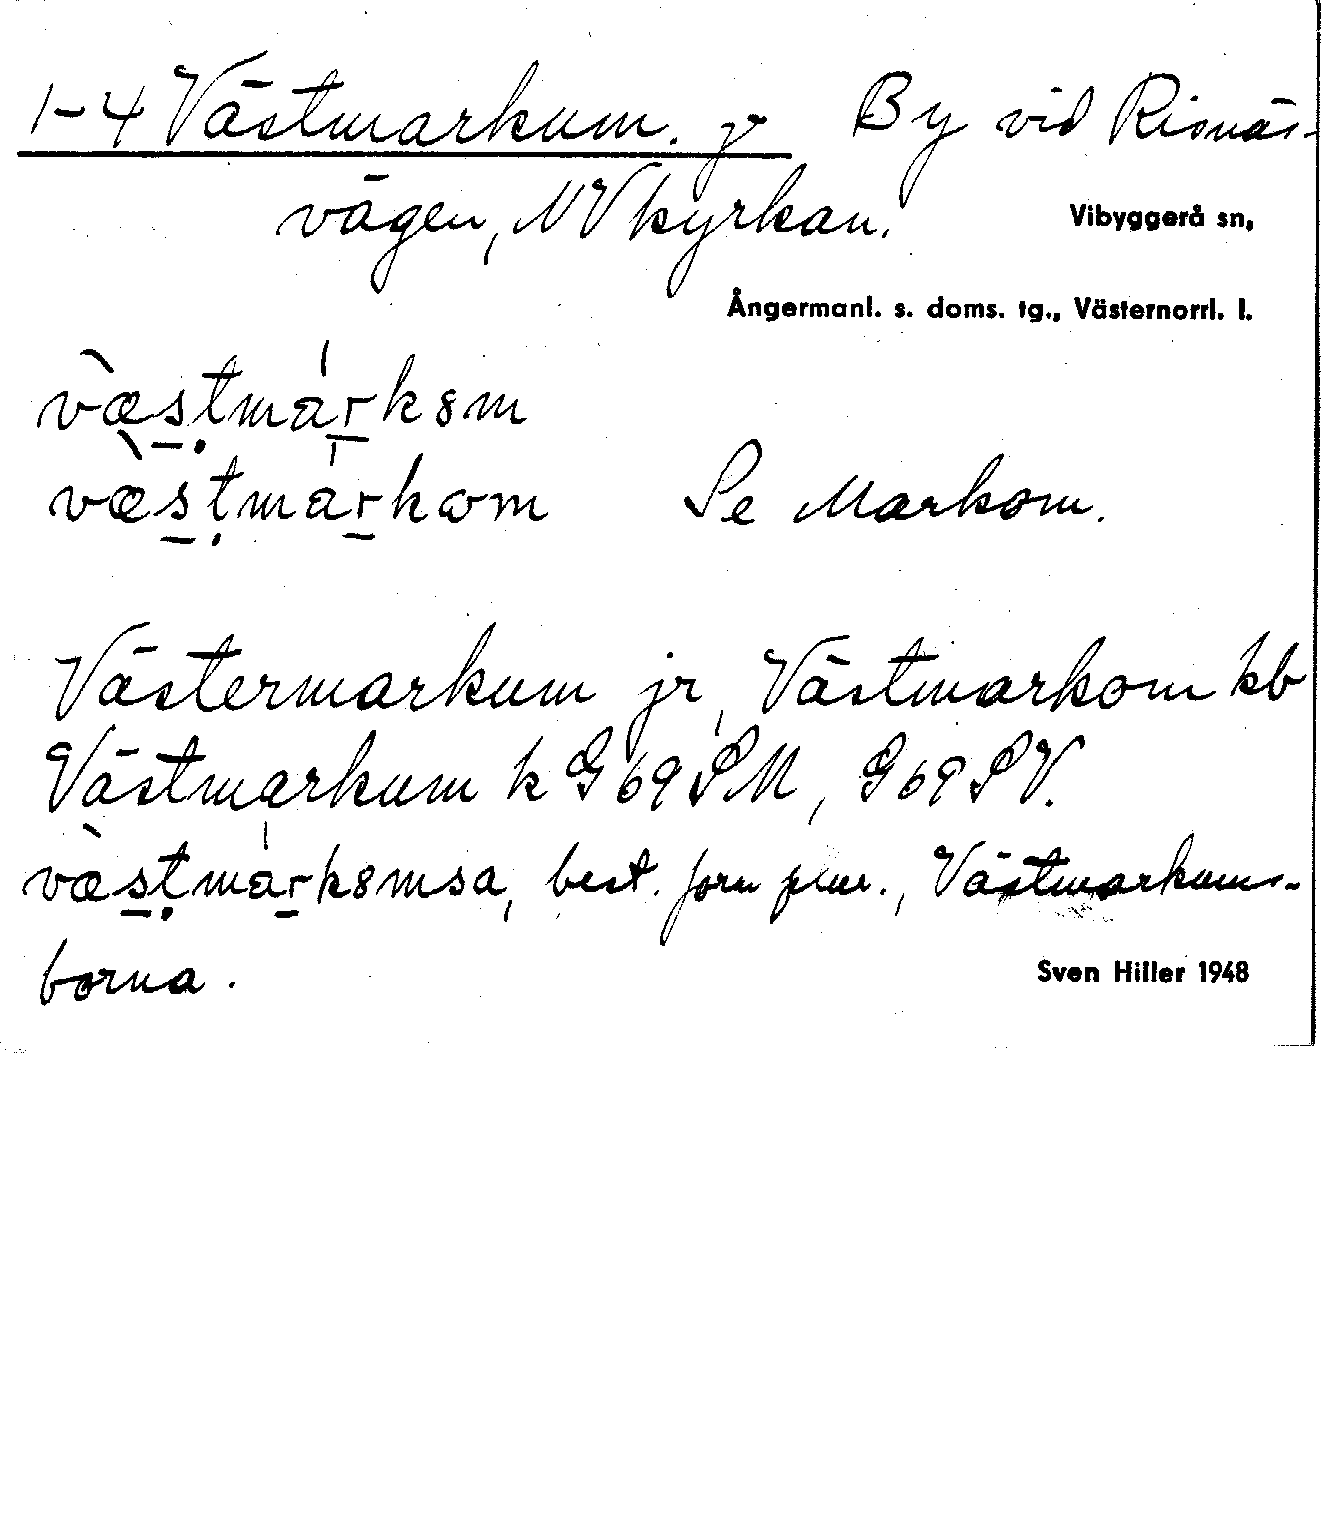 1-4 Västmarkum. By vid Risnäs-
vägen, NV kyrkan.
Vibyggerå sn,
Ångermanl. s. doms. tg., Västernorrl. l.
væstmarkȣm
væstmarkɷm Se Markom.
Västermarkum jr, Västmarkom kb
Västmarkum k G69SM, G69SV.
væstmarkȣmsa, best. form plur., Västmarkums-
borna.
Sven Hiller 1948